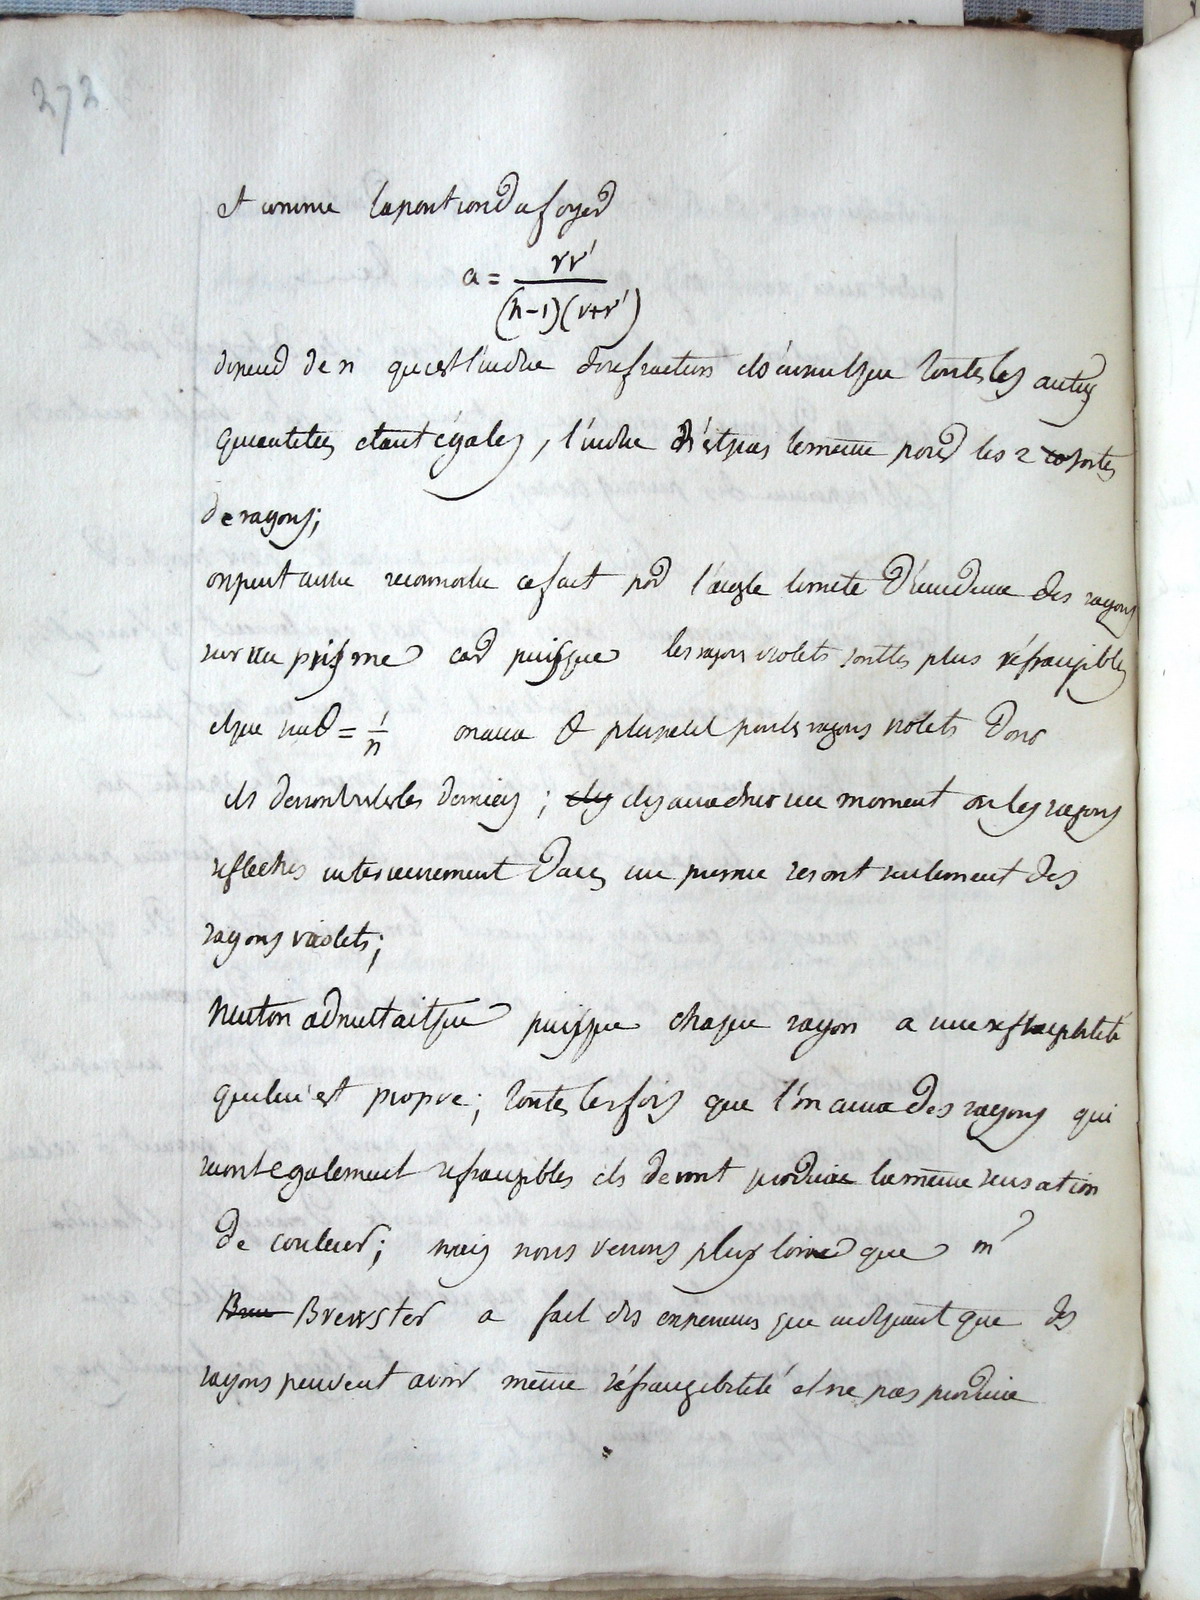 272
et comme la position du foyer
a = rr' / (n-1)(r+r')
depend de n qui est l'indice de refraction il s'ensuit que toutes les autres
quantitées etant égales, l'indice n'est pas le même pour les 2 sortes
de rayons;
on peut aussi reconnoitre ce fait par l'angle limite d'incidence des rayons
sur un prisme car puisque les rayons violets sont les plus réfrangibles
et que sin θ = 1/n on aura θ plus petit pour les rayons violets donc
ils les derniers; il y aura donc un moment ou les rayons
reflechis interieurement dans un prisme seront seulement des
rayons violets;
Neuton admettait que puisque chaque rayon a une refrangibilité
qui lui est propre; toutes les fois que l'on aura des rayons qui
seront egalement refrangibles ils devront produire la même sensation
de couleur; mais nous verrons plus loin que mr
Brewster a fait des experiences qui indiquent que des
rayons peuvent avoir même réfrangibilité et ne pas produire